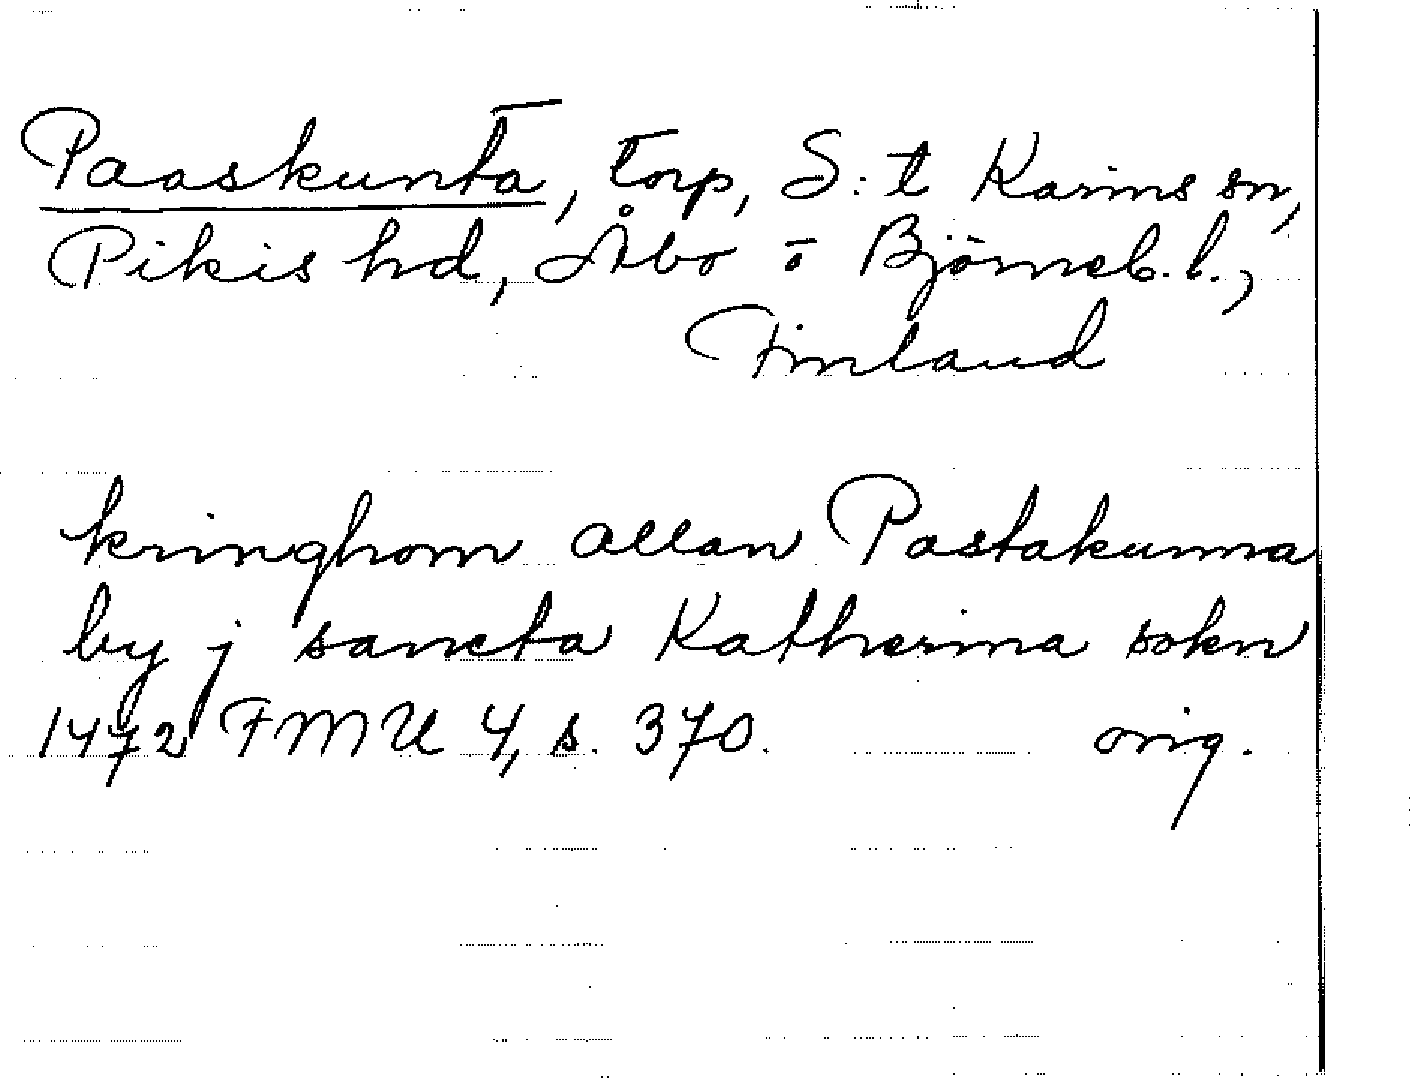 Paaskunta, torp, S:t Karins sn,
Pikis hd, Åbo o Björneb. l.,
Finland
kringhom allan Pastakunna
by j sancta Katherina sokn
1472 FMU 4, s. 370. orig.